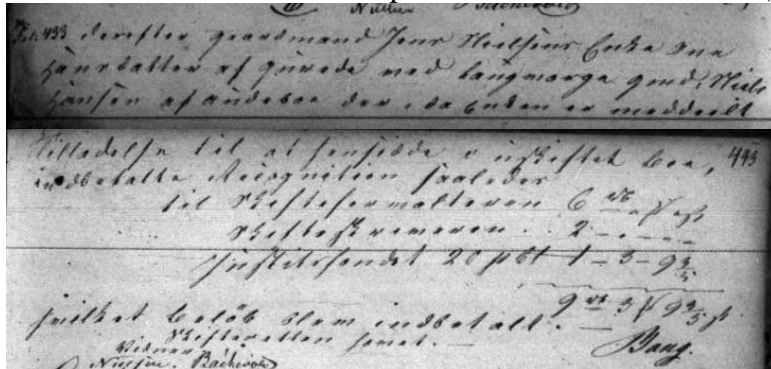 Nielsen Bachevold
Fol. 433 derefter gaardmand Jens Nielsens Enke Ane
Hansdatter af Gurede med Laugværge gmd. Niels
Hansen af Andeboe der, da Enken er meddeelt
Tilladelse til at hensidde i uskiftet Boe, 443
indbetalte Recognition saaledes
til Skifteforvalteren 6 rd - β - s
Skifteskriveren . 2 - . -
Justitsfondet 20 pCt 1 - 3 - 9 3/5
9 rd 3 β 9 3/5 s
hvilket Beløb blev indbetalt. —
Skifteretten hævet. — Bang.
Vidner
Nielsen. Bachevold